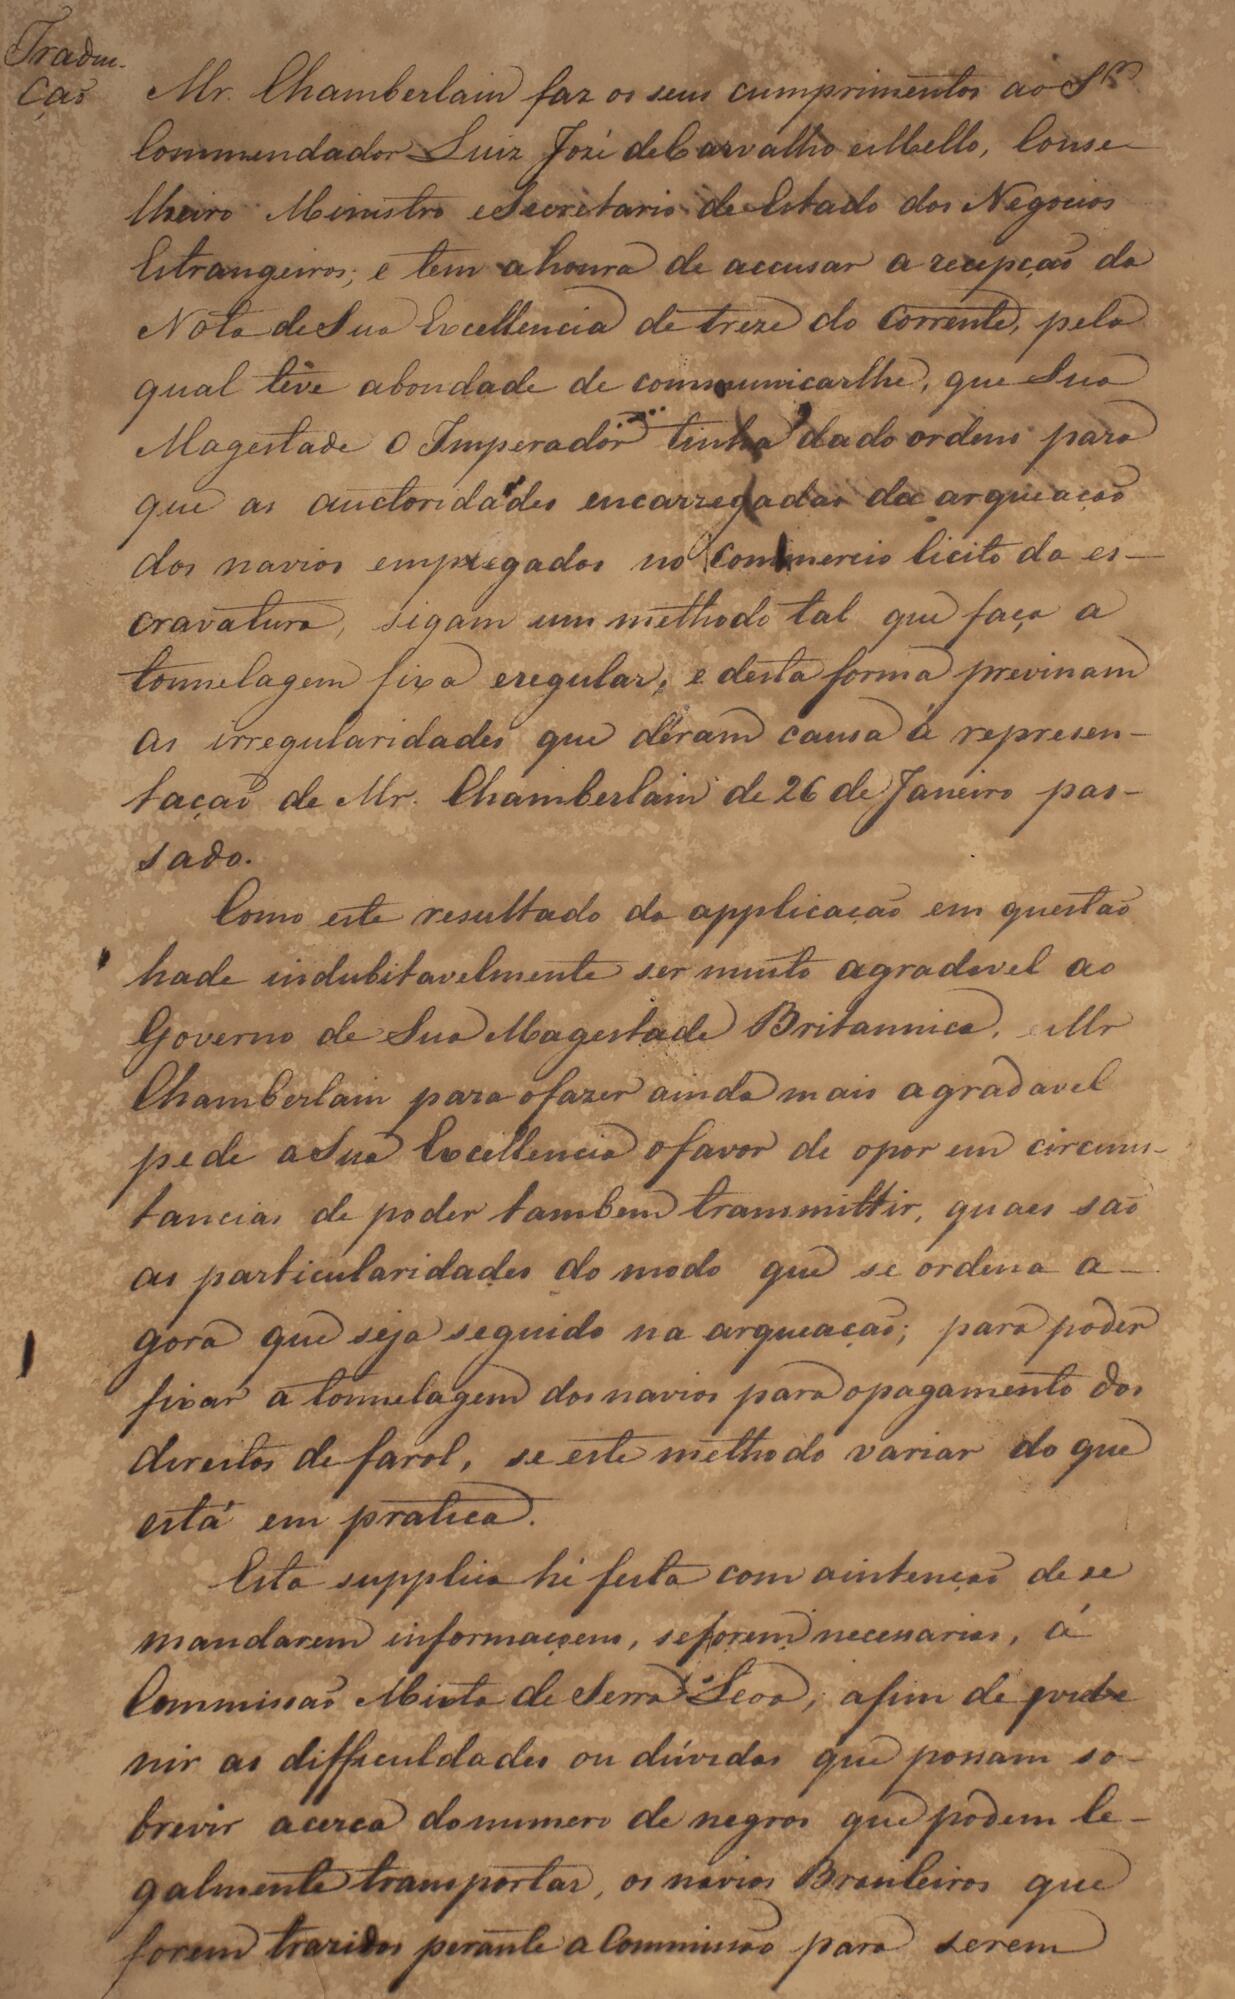 Tradu-
ção
Mr. Chamberlain faz os seus cumprimentos ao Sr.
Commendador Luiz Jozé de Carvalho e Mello, Conse-
lheiro Ministro e Secretario de Estado dos Negocios
Estrangeiros; e tem a honra de accusar a recepção da
Nota de Sua Excellencia de treze do corrente, pela
qual teve a bondade de communicarlhe, que Sua
Magestade O Imperador tinha dado ordens para
que as auctoridades encarregadas da arqueação
dos navios empregados no commercio licito da es-
cravatura, sigam um methodo tal que faça a
tonnelagem fixa e regular, e desta forma previnam
as irregularidades que déram causa á represen-
tação de Mr. Chamberlain de 26 de Janeiro pas-
sado.
Como este resultado da applicação em questão
hade indubitavelmente ser muito agradavel ao
Governo de Sua Magestade Britannica, e Mr
Chamberlain para o fazer ainda mais agradavel
pede a Sua Excellencia o favor de o por em circuns-
tancias de poder tambem transmittir, quaes são
as particularidades do modo que se ordena a-
gora que seja seguido na arqueação; para poder
fixar a tonnelagem dos navios para o pagamento dos
direitos de farol, se este methodo variar do que
está em pratica.
Esta supplica hé feita com a intenção de se
mandarem informaçoens, se forem necessarias, á
Commissão Mixta de Serra Leoa, afim de preve
nir as difficuldades ou dúvidas que possam so-
brevir acerca do numero de negros que podem le-
galmente transportar, os navios Brasileiros que
forem trazidos perante a Commissão para serem